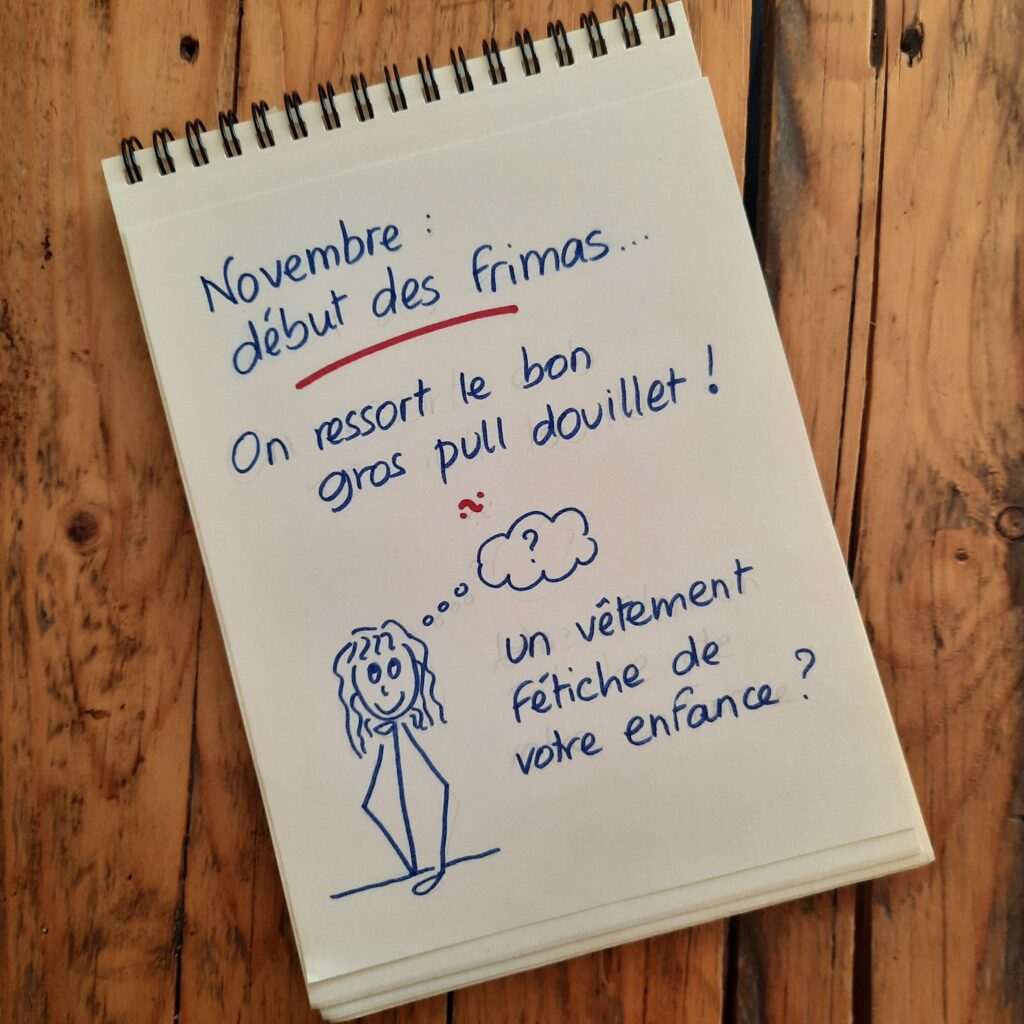 Novembre :
début des frimas...
On ressort le bon
gros pull douillet !
?
un vêtement
fétiche de
votre enfance ?